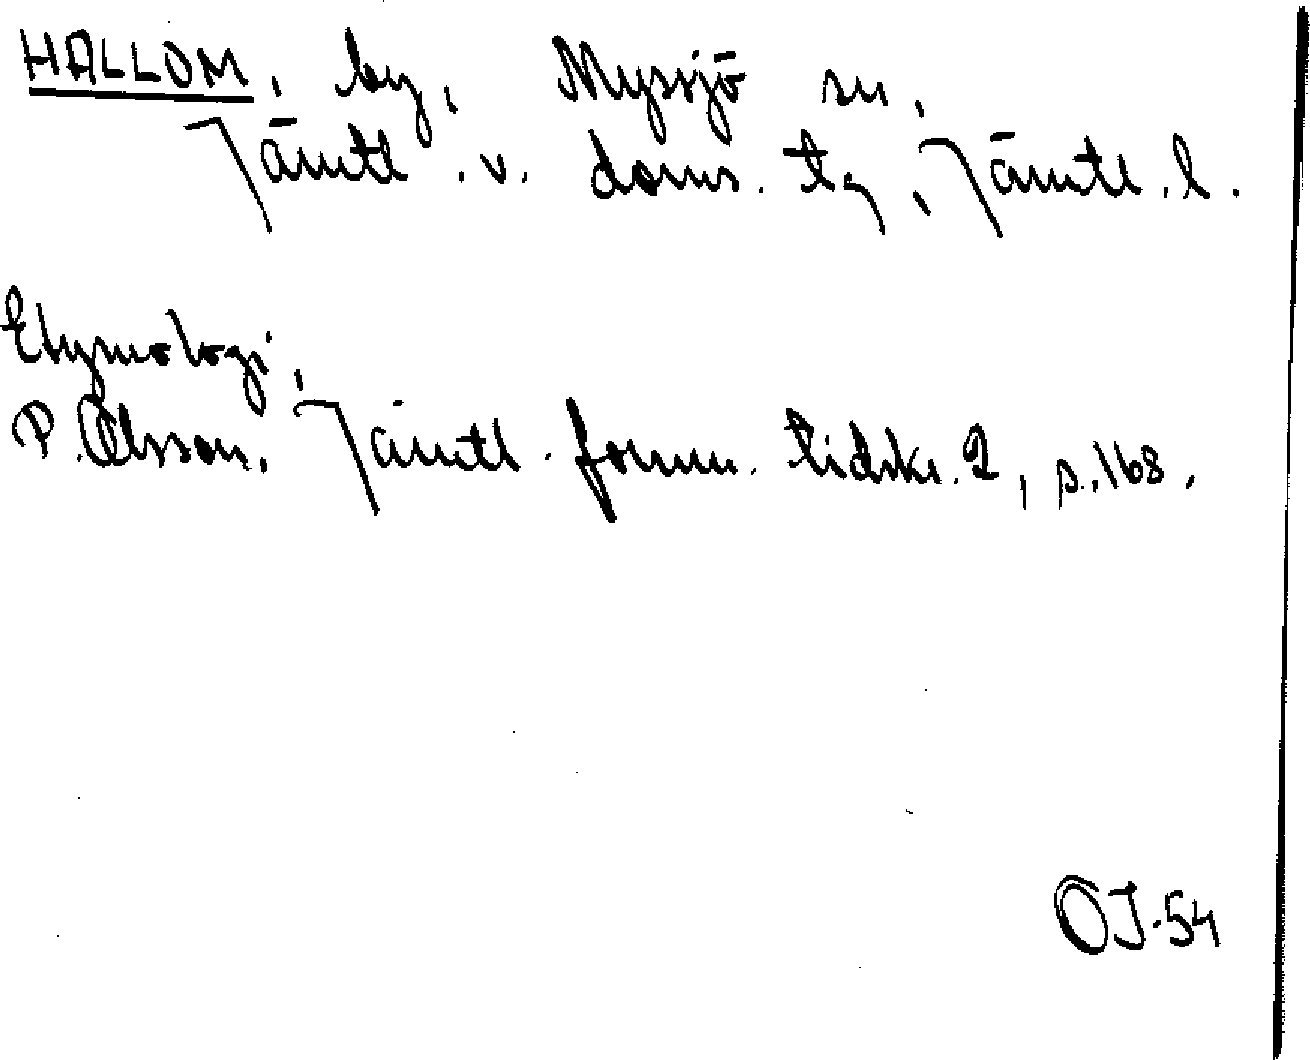 HALLOM, by, Myssjö sn,
Jämtl. v. doms. tg, Jämtl. l.
Etymologi,
P. Olsson, Jämtl. fornm. tidskr. 2, s. 168.
OJ-54